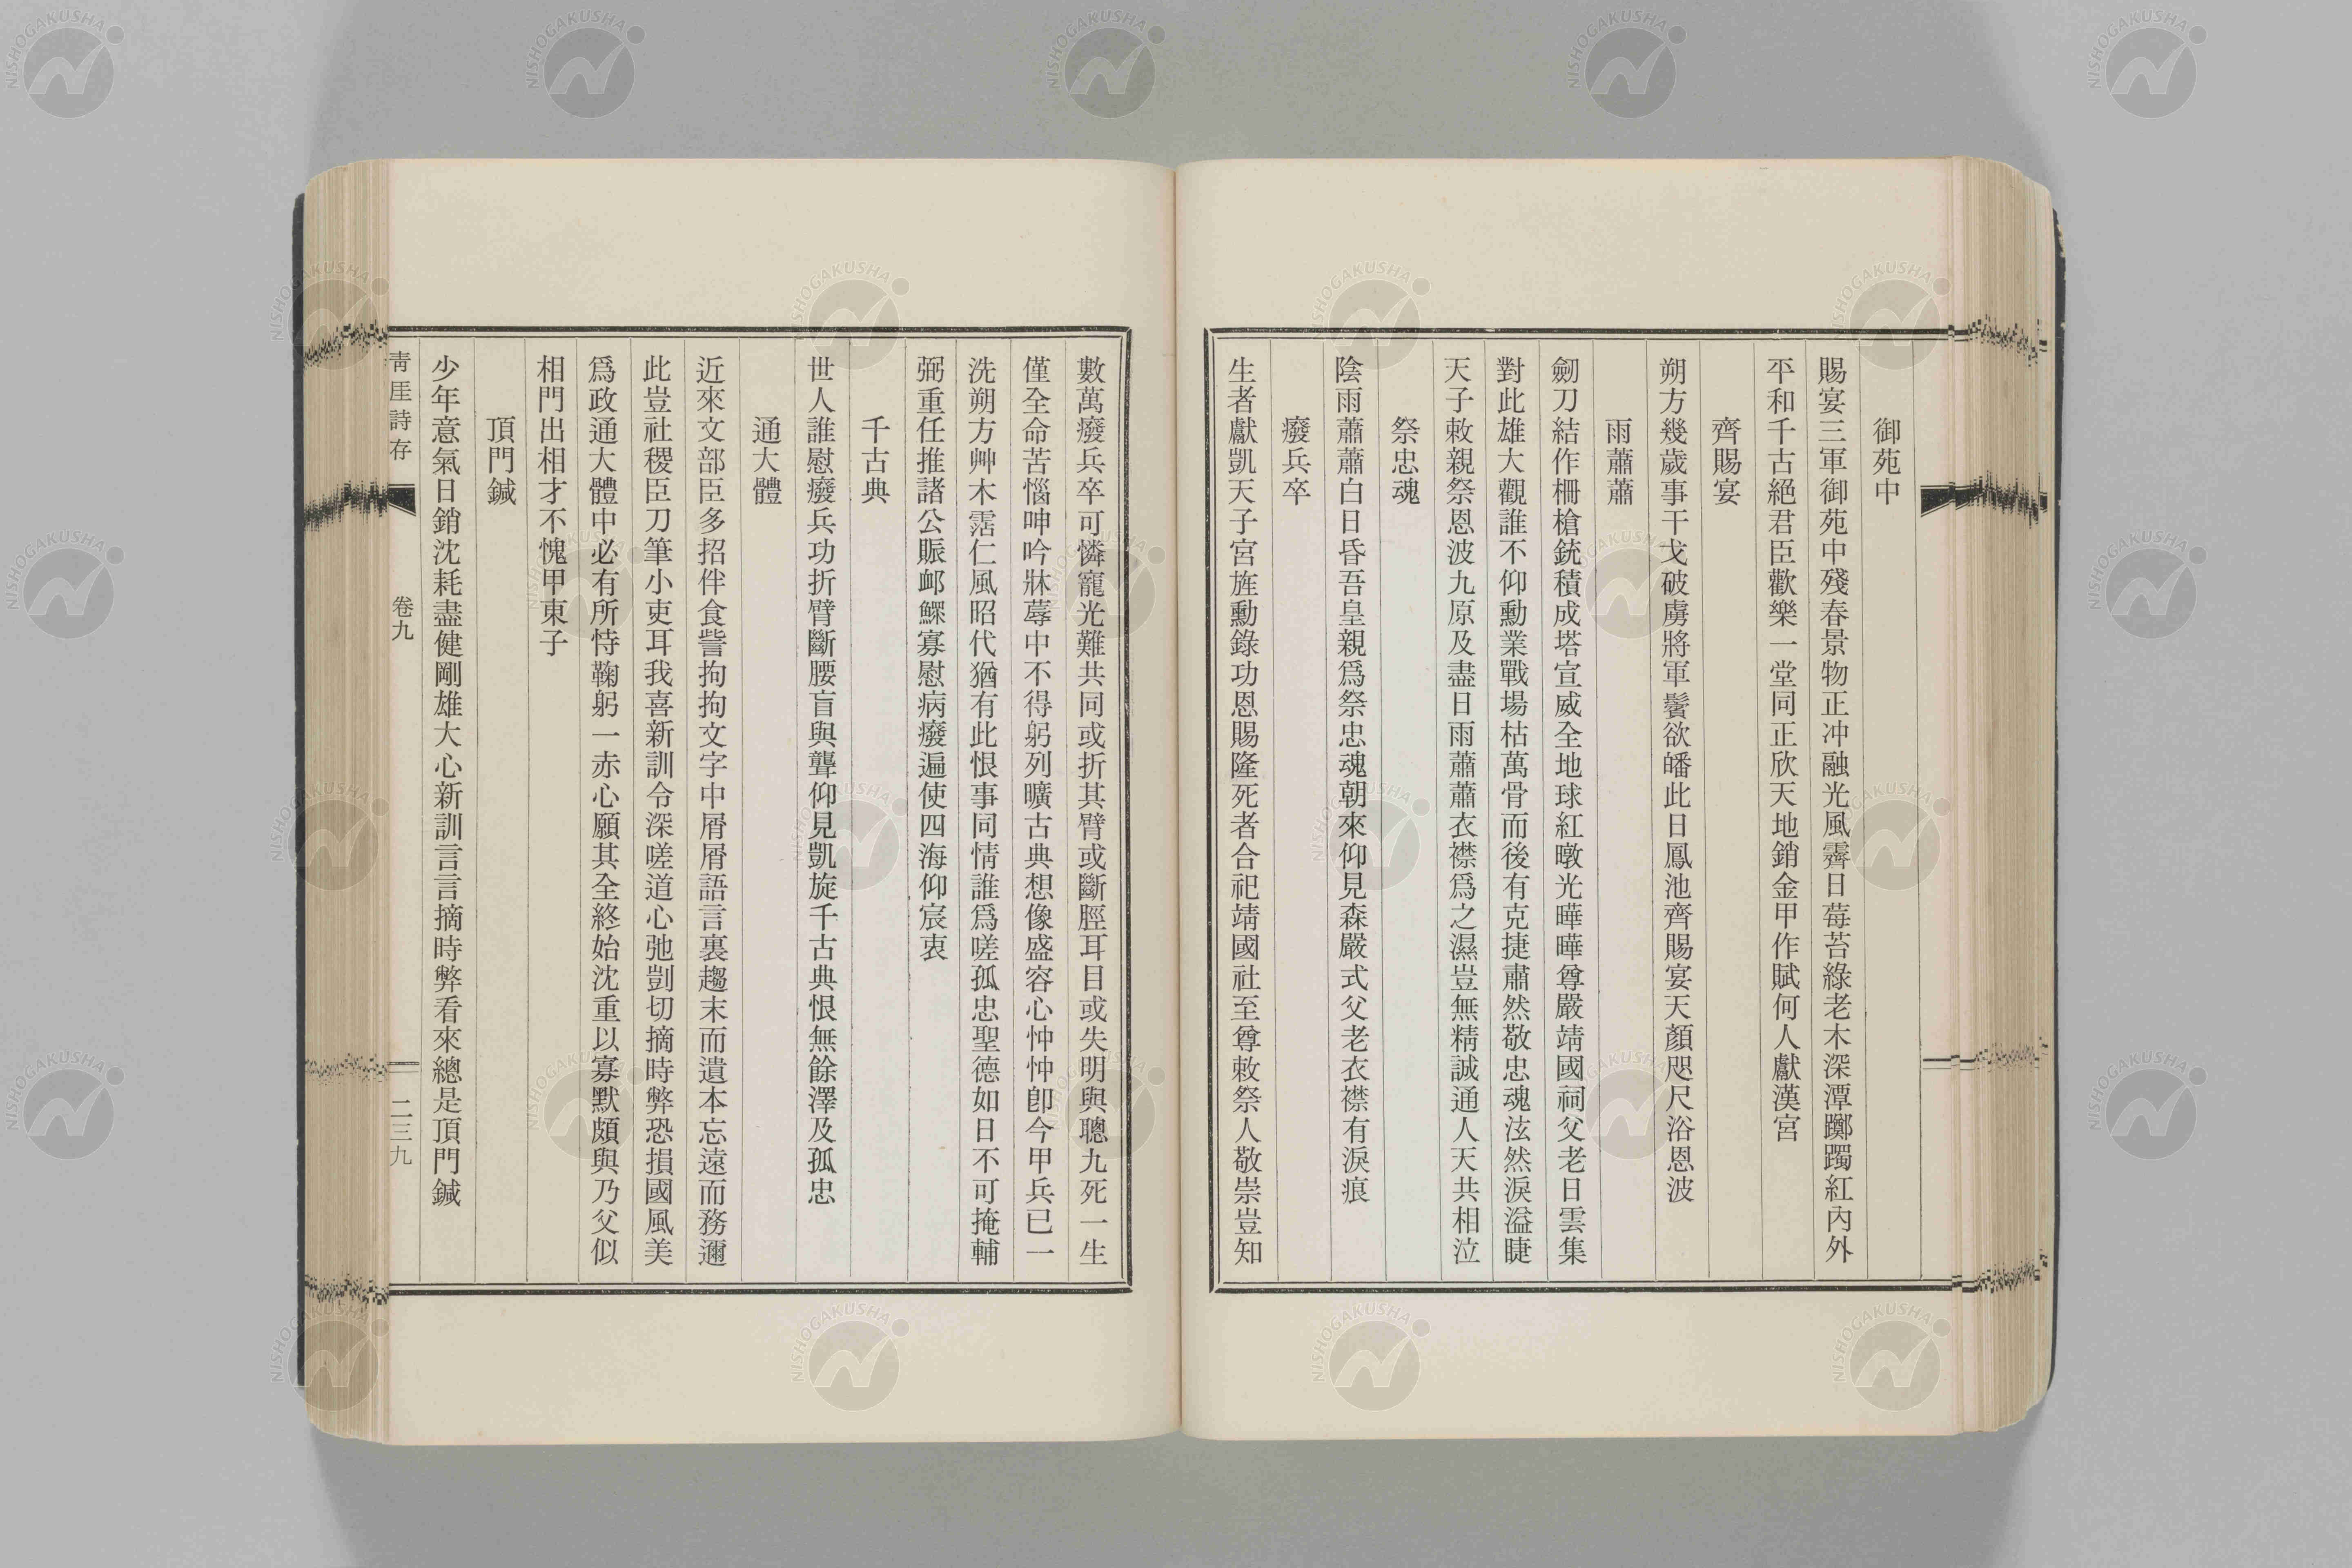 御苑中
賜宴三軍御苑中殘春景物正冲融光風霽日莓苔綠老木深潭躑躅紅內外
平和千古絕君臣歡樂一堂同正欣天地銷金甲作賦何人獻漢宮
齊賜宴
朔方幾歲事干戈破虜將軍鬢欲皤此日鳳池齊賜宴天顏咫尺浴恩波
雨蕭蕭
劒刀結作柵槍銃積成塔宣威全地球紅暾光曄曄尊嚴靖國祠父老日雲集
對此雄大觀誰不仰勳業戰場枯萬骨而後有克捷肅然敬忠魂泫然淚溢睫
天子敕親祭恩波九原及盡日雨蕭蕭衣襟爲之濕豈無精誠通人天共相泣
祭忠魂
陰雨蕭蕭白日昏吾皇親爲祭忠魂朝來仰見森嚴式父老衣襟有淚痕
癈兵卒
生者獻凱天子宮旌勳錄功恩賜隆死者合祀靖國社至尊敕祭人敬崇豈知
數萬癈兵卒可憐寵光難共同或折其臂或斷脛耳目或失明與聰九死一生
僅全命苦惱呻吟牀蓐中不得躬列曠古典想像盛容心忡忡卽今甲兵已一
洗朔方艸木霑仁風昭代猶有此恨事同情誰爲嗟孤忠聖德如日不可掩輔
弼重任推諸公賑邺鰥寡慰病癈遍使四海仰宸衷
千古典
世人誰慰癈兵功折臂斷腰盲與聾仰見凱旋千古典恨無餘澤及孤忠
通大體
近來文部臣多招伴食訾拘拘文字中屑屑語言裏趨末而遺本忘遠而務邇
此豈社稷臣刀筆小吏耳我喜新訓令深嗟道心弛剴切摘時弊恐損國風美
爲政通大體中必有所恃鞠躬一赤心願其全終始沈重以寡默頗與乃父似
相門出相才不愧甲東子
頂門鍼
少年意氣日銷沈耗盡健剛雄大心新訓言言摘時弊看來總是頂門鍼
靑厓詩存
卷九
二三九
NISHOGAKUSHA